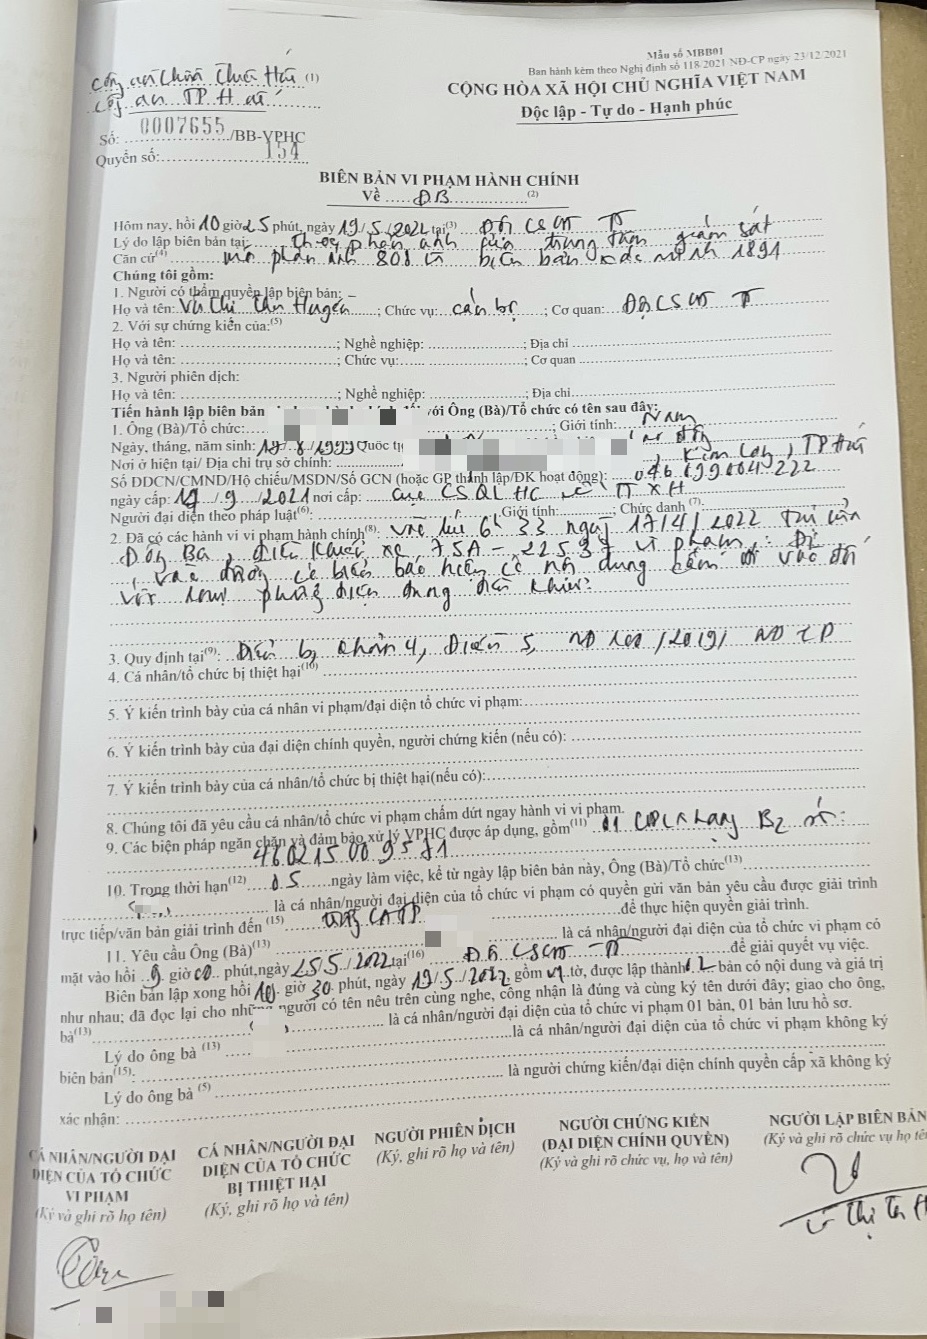 Mẫu số MBB01
Ban hành kèm theo Nghị định số 118/2021 NĐ-CP ngày 23/12/2021
CỘNG HÒA XÃ HỘI CHỦ NGHĨA VIỆT NAM
Độc lập - Tự do - Hạnh phúc
Công an (1)
Công an TP. H
Số: 0007655 /BB-VPHC
Quyển số: 154
BIÊN BẢN VI PHẠM HÀNH CHÍNH
Về ĐB (2)
Hôm nay, hồi 10 giờ 25 phút, ngày 19/5/2022 tại(3) Đội CSGT
Lý do lập biên bản tại: Theo phản ánh của trung tâm giám sát
Căn cứ(4) mã phản ánh biên bản xác minh 1891
Chúng tôi gồm:
1. Người có thẩm quyền lập biên bản: –
Họ và tên: Vũ Thị ; Chức vụ: cán bộ ; Cơ quan: Đội CSGT
2. Với sự chứng kiến của:(5)
Họ và tên: ; Nghề nghiệp: ; Địa chỉ
Họ và tên: ; Chức vụ: ; Cơ quan
3. Người phiên dịch:
Họ và tên: ; Nghề nghiệp: ; Địa chỉ
Tiến hành lập biên bản với Ông (Bà)/Tổ chức có tên sau đây:
1. Ông (Bà)/Tổ chức: ; Giới tính: Nam
Ngày, tháng, năm sinh: /8/1999 Quốc tịch
Nơi ở hiện tại/ Địa chỉ trụ sở chính: , Kim Long, TP Huế
Số DDCN/CMND/Hộ chiếu/MSDN/Số GCN (hoặc GP thành lập/ĐK hoạt động): 046199004222
ngày cấp: /9/2021 nơi cấp: cục CSQLHC về TTXH
Người đại diện theo pháp luật(6): Giới tính: ; Chức danh (7):
2. Đã có các hành vi vi phạm hành chính(8): vào lúc 6h 33 ngày 17/4/2022 Tại cầu
Đông Ba, điều khiển xe 75A - vi phạm: Đi
vào đường có biển báo hiệu có nội dung cấm đi vào đối
với loại phương tiện đang điều khiển.
3. Quy định tại(9): Điểm b, khoản 4, Điều 5, NĐ 100/2019/ NĐCP
4. Cá nhân/tổ chức bị thiệt hại(10)
5. Ý kiến trình bày của cá nhân vi phạm/đại diện tổ chức vi phạm:
6. Ý kiến trình bày của đại diện chính quyền, người chứng kiến (nếu có):
7. Ý kiến trình bày của cá nhân/tổ chức bị thiệt hại(nếu có):
8. Chúng tôi đã yêu cầu cá nhân/tổ chức vi phạm chấm dứt ngay hành vi vi phạm.
9. Các biện pháp ngăn chặn và đảm bảo xử lý VPHC được áp dụng, gồm(11) 01 GPLX hạng B2 số:
10. Trong thời hạn(12) 05 ngày làm việc, kể từ ngày lập biên bản này, Ông (Bà)/Tổ chức(13)
là cá nhân/người đại diện của tổ chức vi phạm có quyền gửi văn bản yêu cầu được giải trình
trực tiếp/văn bản giải trình đến (15) CATP để thực hiện quyền giải trình.
11. Yêu cầu Ông (Bà)(13) là cá nhân/người đại diện của tổ chức vi phạm có
mặt vào hồi 9 giờ 00 phút, ngày 25/5/2022 tại(16) Đội CSGT để giải quyết vụ việc.
Biên bản lập xong hồi 10 giờ 30 phút, ngày 19/5/2022 gồm 01 tờ, được lập thành 02 bản có nội dung và giá trị
như nhau; đã đọc lại cho những người có tên nêu trên cùng nghe, công nhận là đúng và cùng ký tên dưới đây; giao cho ông,
bà(13) là cá nhân/người đại diện của tổ chức vi phạm 01 bản, 01 bản lưu hồ sơ.
Lý do ông bà (13) là cá nhân/người đại diện của tổ chức vi phạm không ký
biên bản(15):
Lý do ông bà (5) là người chứng kiến/đại diện chính quyền cấp xã không ký
xác nhận:
CÁ NHÂN/NGƯỜI ĐẠI
DIỆN CỦA TỔ CHỨC
VI PHẠM
(Ký và ghi rõ họ tên)
CÁ NHÂN/NGƯỜI ĐẠI
DIỆN CỦA TỔ CHỨC
BỊ THIỆT HẠI
(Ký, ghi rõ họ và tên)
NGƯỜI PHIÊN DỊCH
(Ký, ghi rõ họ và tên)
NGƯỜI CHỨNG KIẾN
(ĐẠI DIỆN CHÍNH QUYỀN)
(Ký và ghi rõ chức vụ, họ và tên)
NGƯỜI LẬP BIÊN BẢN
(Ký và ghi rõ chức vụ họ tên